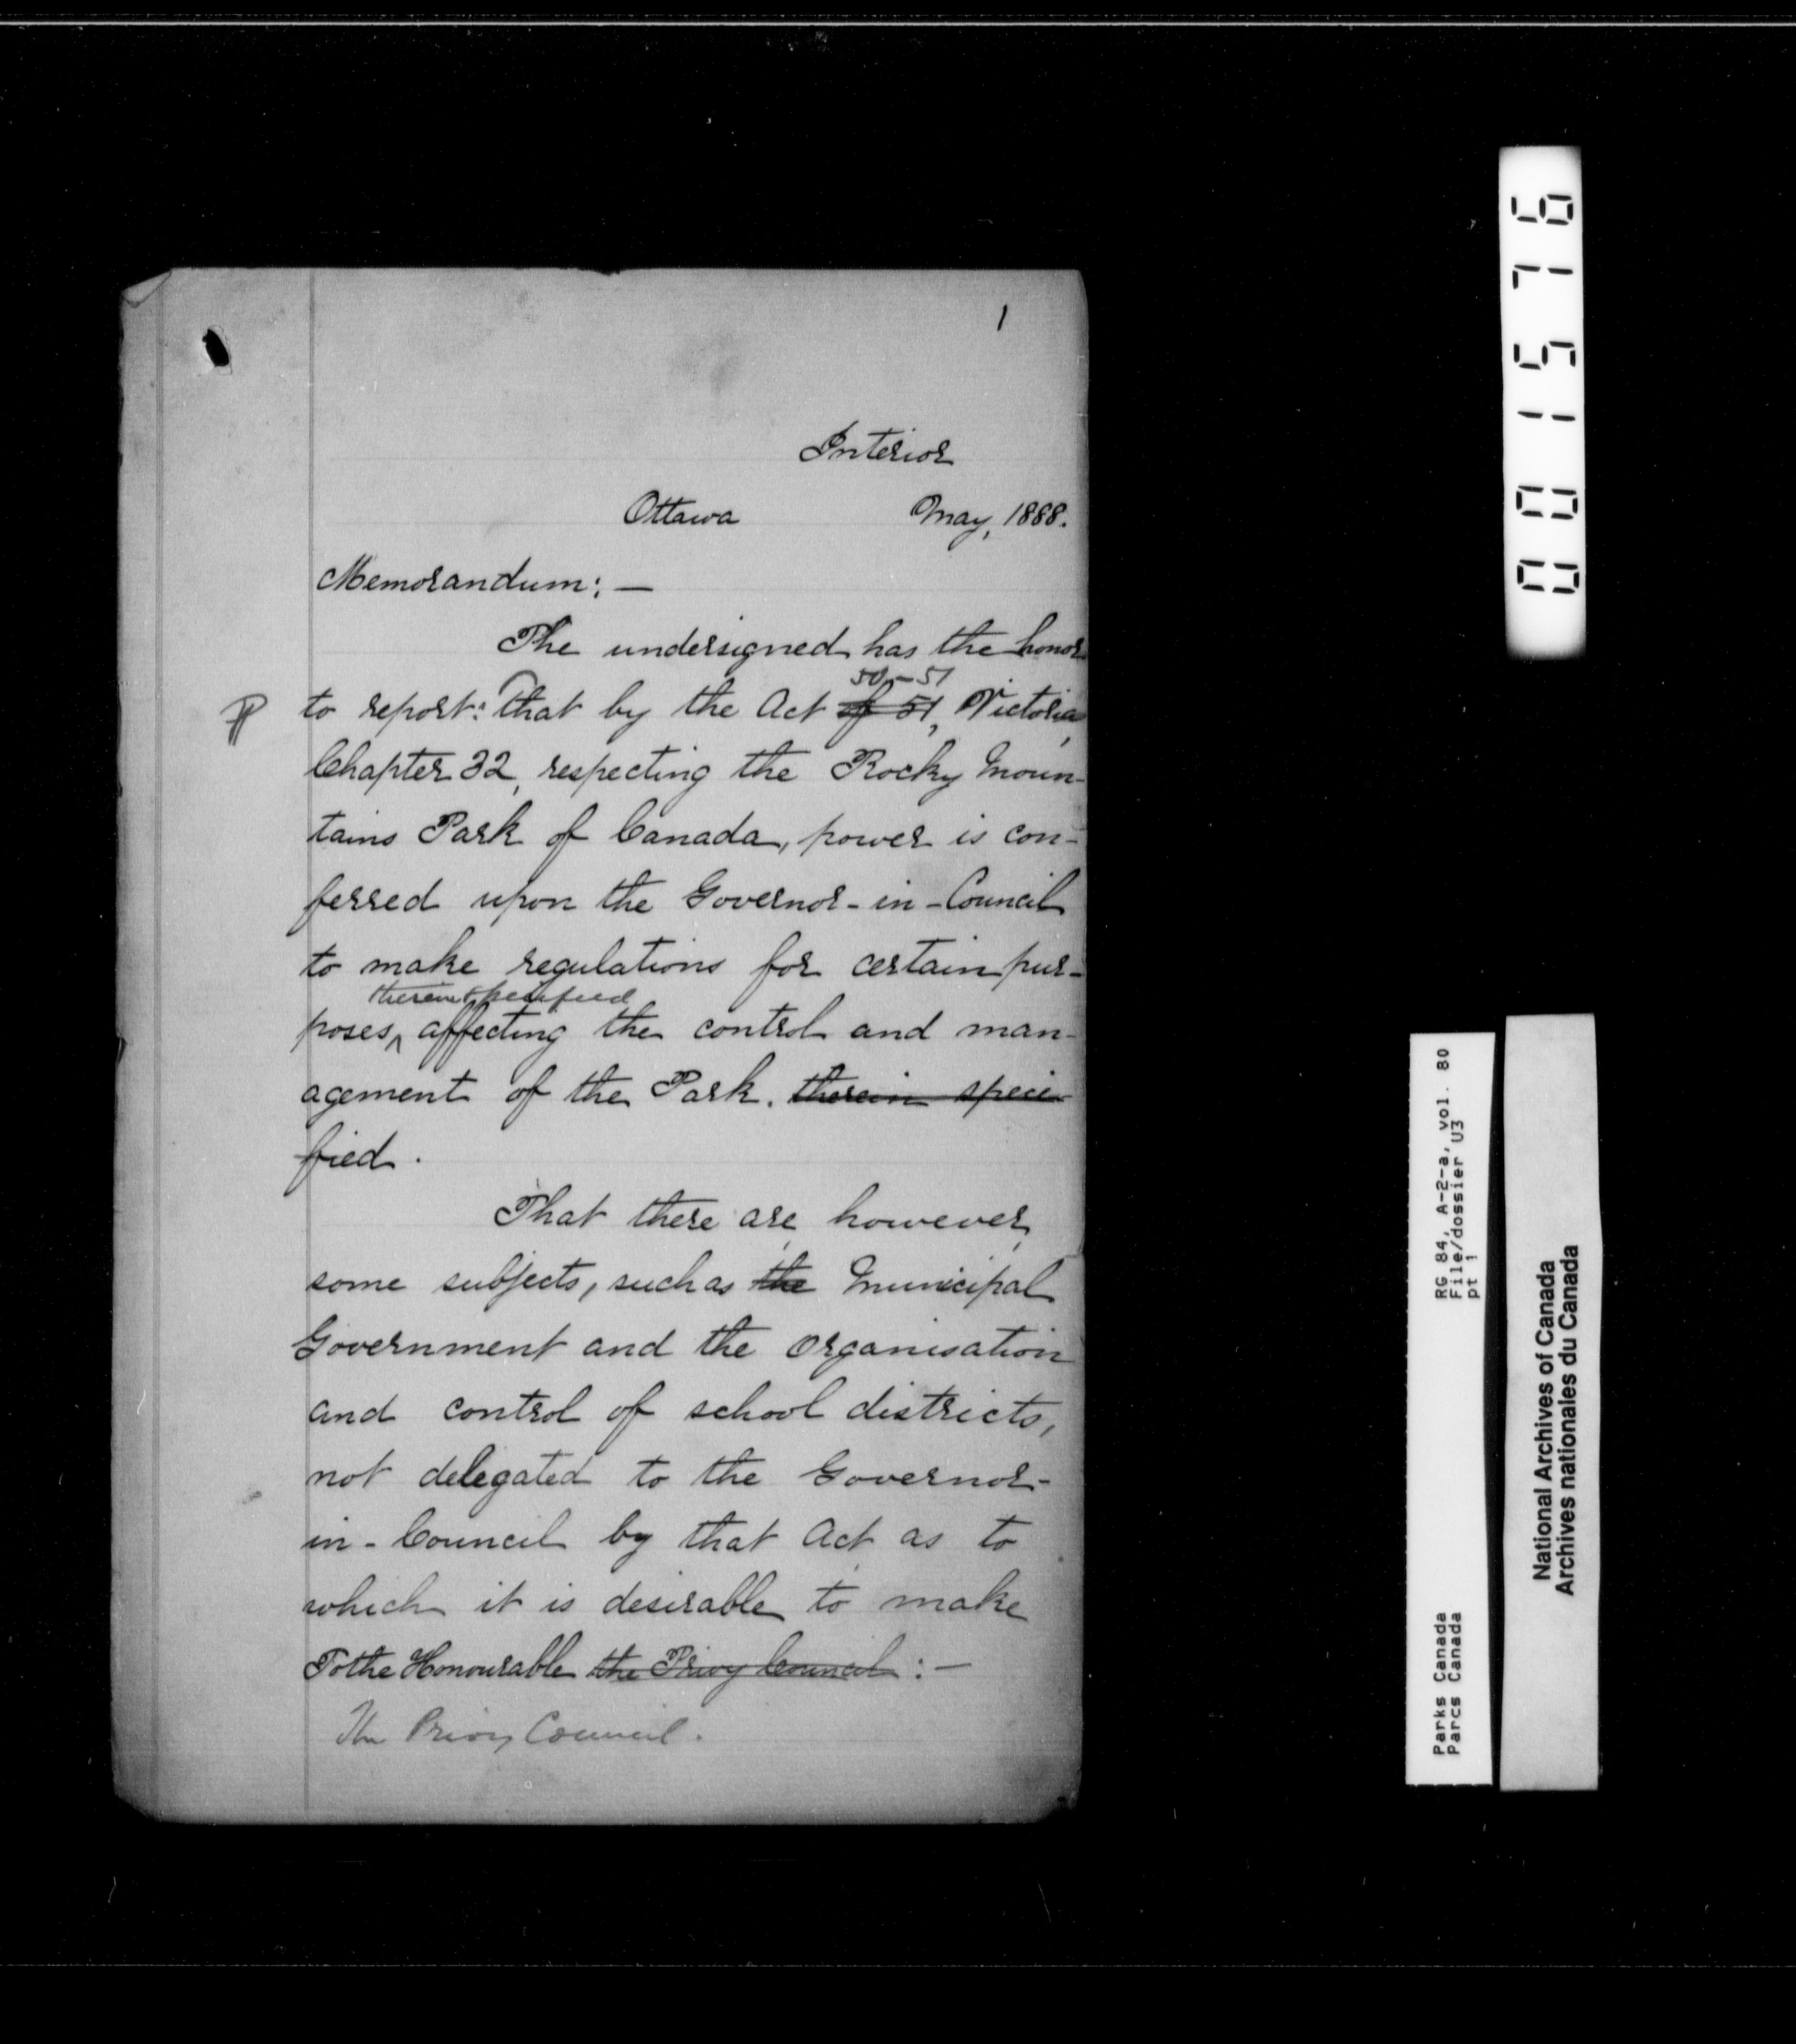 1
Interior
Ottawa May, 1888.
Memorandum: —
The undersigned has the honor
50-51
to report: that by the Act of 51, Victoria,
Chapter 32, respecting the Rocky Moun-
tains Park of Canada, power is con-
ferred upon the Governor-in-Council
to make regulations for certain pur-
therein specified
poses, affecting the control and man-
agement of the Park. therein speci-
fied.
That there are, however,
some subjects, such as the Municipal
Government and the organisation
and control of school districts,
not delegated to the Governor-
in-Council by that Act as to
which it is desirable to make
To the Honourable the Privy Council: —
The Privy Council.
001576
RG 84, A-2-a, vol. 80
File/dossier U3
pt 1
Parks Canada
Parcs Canada
National Archives of Canada
Archives nationales du Canada